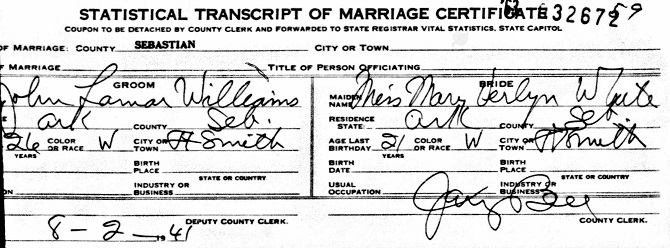 STATISTICAL TRANSCRIPT OF MARRIAGE CERTIFICATE 32672 59
COUPON TO BE DETACHED BY COUNTY CLERK AND FORWARDED TO STATE REGISTRAR VITAL STATISTICS, STATE CAPITOL
OF MARRIAGE: COUNTY SEBASTIAN CITY OR TOWN
F MARRIAGE TITLE OF PERSON OFFICIATING
GROOM BRIDE
John Lamar Williams MAIDEN NAME Miss Mary Verlyn White
Ark COUNTY Seb. RESIDENCE STATE Ark COUNTY Seb.
26 YEARS COLOR OR RACE W CITY OR TOWN Ft Smith AGE LAST BIRTHDAY 21 YEARS COLOR OR RACE W CITY OR TOWN Ft Smith
BIRTH PLACE STATE OR COUNTRY BIRTH DATE BIRTH PLACE STATE OR COUNTRY
ON INDUSTRY OR BUSINESS USUAL OCCUPATION INDUSTRY OR BUSINESS
8-2-1941 DEPUTY COUNTY CLERK. COUNTY CLERK.